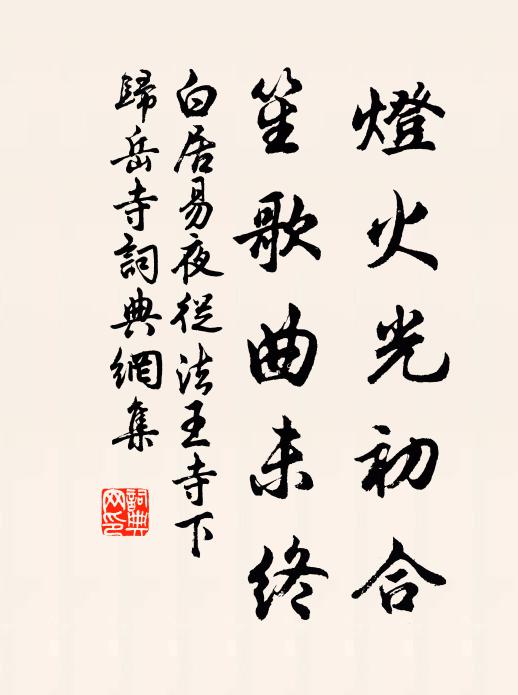 燈火光初合
笙歌曲未終
白居易夜從法王寺下
歸岳寺詞典網集
詞典
网印